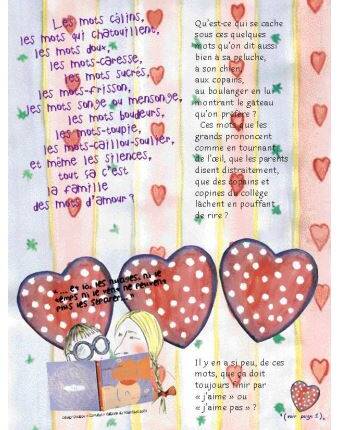 Les mots câlins,
les mots qui chatouillent,
les mots doux,
les mots-caresse,
les mots sucrés,
les mots-frisson,
les mots songe ou mensonge,
les mots boudeurs,
les mots-toupie,
les mots-caillou-soulier,
et même les silences,
tout ça c'est
la famille
des mots d'amour ?
Qu'est-ce qui se cache
sous ces quelques
mots qu'on dit aussi
bien à sa peluche,
à son chien,
aux copains,
au boulanger en lui
montrant le gâteau
qu'on préfère ?
Ces mots que les
grands prononcent
comme en tournant
de l'œil, que les parents
disent distraitement,
que des copains et
copines du collège
lâchent en pouffant
de rire ?
"... et toi, les nuages, ni le
temps ni le vent ne peuvent
plus les séparer..."
Il y en a si peu, de ces
mots, que ça doit
toujours finir par
« j'aime » ou
« j'aime pas » ?
*(voir page 1).